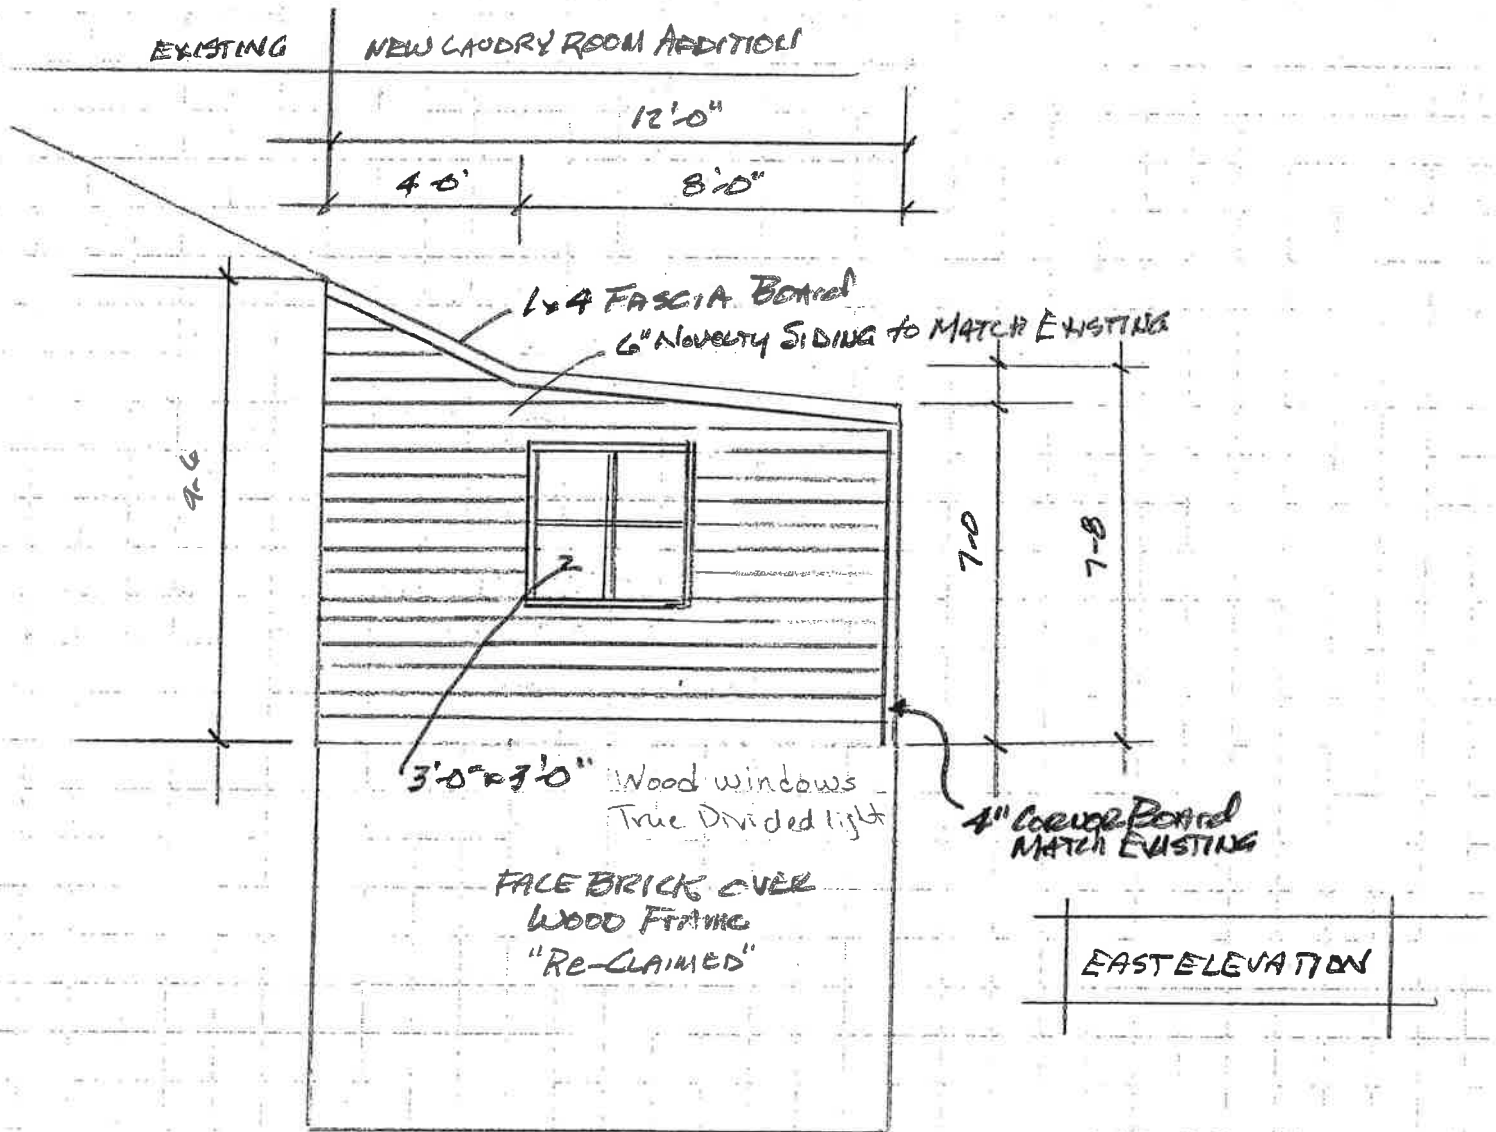 EXISTING
NEW LAUDRY ROOM ADDITION
12'-0"
4-0'
8'-0"
1x4 FASCIA BOARD
6" NOVELTY SIDING to MATCH EXISTING
9-6
7-0
7-8
3'-0" x 3'-0" Wood windows
True Divided light
4" CORNOR BOARD
MATCH EXISTING
FACE BRICK OVER
WOOD FRAME
"RE-CLAIMED"
EAST ELEVATION